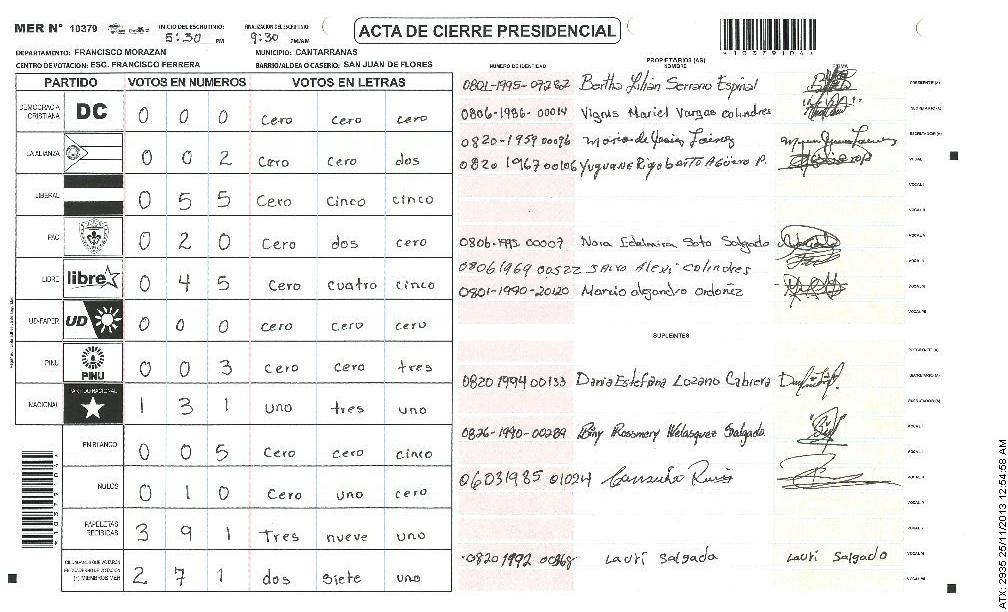 MER N° 10379
INICIO DEL ESCRUTINIO: 5:30 PM
FINALIZACION DEL ESCRUTINIO: 9:30 PM/AM
ACTA DE CIERRE PRESIDENCIAL
DEPARTAMENTO: FRANCISCO MORAZAN
MUNICIPIO: CANTARRANAS
CENTRO DE VOTACION: ESC. FRANCISCO FERRERA
BARRIO/ALDEA O CASERIO: SAN JUAN DE FLORES
PARTIDO VOTOS EN NUMEROS VOTOS EN LETRAS
DEMOCRACIA CRISTIANA DC 0 0 0 cero cero cero
LA ALIANZA 0 0 2 Cero cero dos
LIBERAL 0 5 5 Cero Cinco cinco
PAC 0 2 0 Cero dos cero
LIBRE libre 0 4 5 Cero cuatro cinco
UD-FAPER UD 0 0 0 cero cero cero
PINU PINU 0 0 3 cero cero tres
NACIONAL PARTIDO NACIONAL 1 3 1 uno tres uno
EN BLANCO 0 0 5 cero cero cinco
NULOS 0 1 0 Cero uno cero
PAPELETAS RECIBIDAS 3 9 1 Tres nueve uno
(+) MIEMBROS MER 2 7 1 dos siete uno
NUMERO DE IDENTIDAD
PROPIETARIOS (AS)
NOMBRE
FIRMA
0801-1995-07282 Bertha Lilian Serrano Espinal PRESIDENTE (A)
0806-1986-00014 Vignus Mariel Vargas colindres
0820-1959 00096 Maria de Jesus Lainez ESCRUTADOR (A)
0820 1967 00106 Yuguane Rigoberto Agüero P. VOCAL
VOCAL I
VOCAL II
0806-1992 00007 Nora Edelmira Soto Salgado
08061969 00522 Salvo Alexi colindres
0801-1990-20120 Marcio alejandro ordoñez
SUPLENTES
PRESIDENTE (A)
0820 1994 00133 Dania Estefana Lozano Cabrera SECRETARIO (A)
ESCRUTADOR (A)
0826-1990-00289 Biny Rossmery Velasquez Salgado.
06031985 01024
0820 1992 Lauri Salgado Lauri Salgado
ATX: 2935 25/11/2013 12:54:58 AM